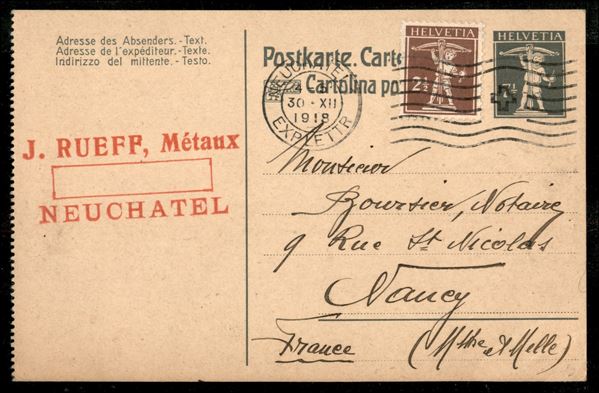 Adresse des Absenders.-Text.
Adresse de l'expéditeur.-Texte.
Indirizzo del mittente.-Testo.
Postkarte. Cart
Cartolina po
HELVETIA
2½
HELVETIA
7½
NEUCHATEL
30·XII
1918
EXP. LETTR
J. RUEFF, Métaux
NEUCHATEL
Monsieur
Boursier, Notaire
9 Rue St Nicolas
Nancy
France (Mthe et Melle)